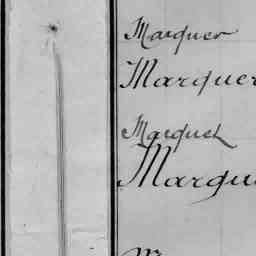 Marquer
Marquer
Marquet
Marqu
M